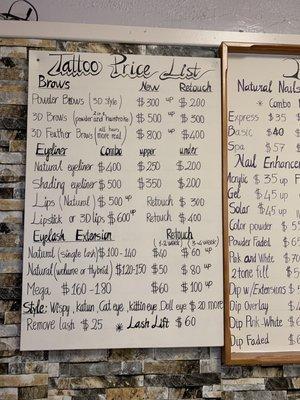 Tattoo Price List
Brows New Retouch
Powder Brows (3D style) $300 up $200
3D Brows (2 in 1 powder and Hairstroke) $500 up $300
3D Feather Brows (all hairs more real) $800 up $400
Eyeliner Combo upper under
Natural eyeliner $400 $250 $200
Shading eyeliner $500 $350 $200
Lips (Natural) $500 up Retouch $300
Lipstick or 3D lips $600 up Retouch $400
Eyelash Extension Retouch
(1-2 week) (3-4 week)
Natural (single lash) $100-140 $40 $60 up
Natural (volume or Hybrid) $120-150 $50 $80 up
Mega $160-180 $60 $100 up
Style: Wispy, katun, Cat eye, kitten eye Doll eye $20 more
Remove lash $25 * Lash Lift $60
Natural Nails
* Combo
Express $35
Basic $40
Spa $57
Nail Enhance
Acrylic $35 up
Gel $45 up
Solar $45 up
Color powder $55
Powder Faded $65
Pink and White $70
2 tone fill $55
Dip w/Extensions
Dip Overlay
Dip Pink-White
Dip Faded